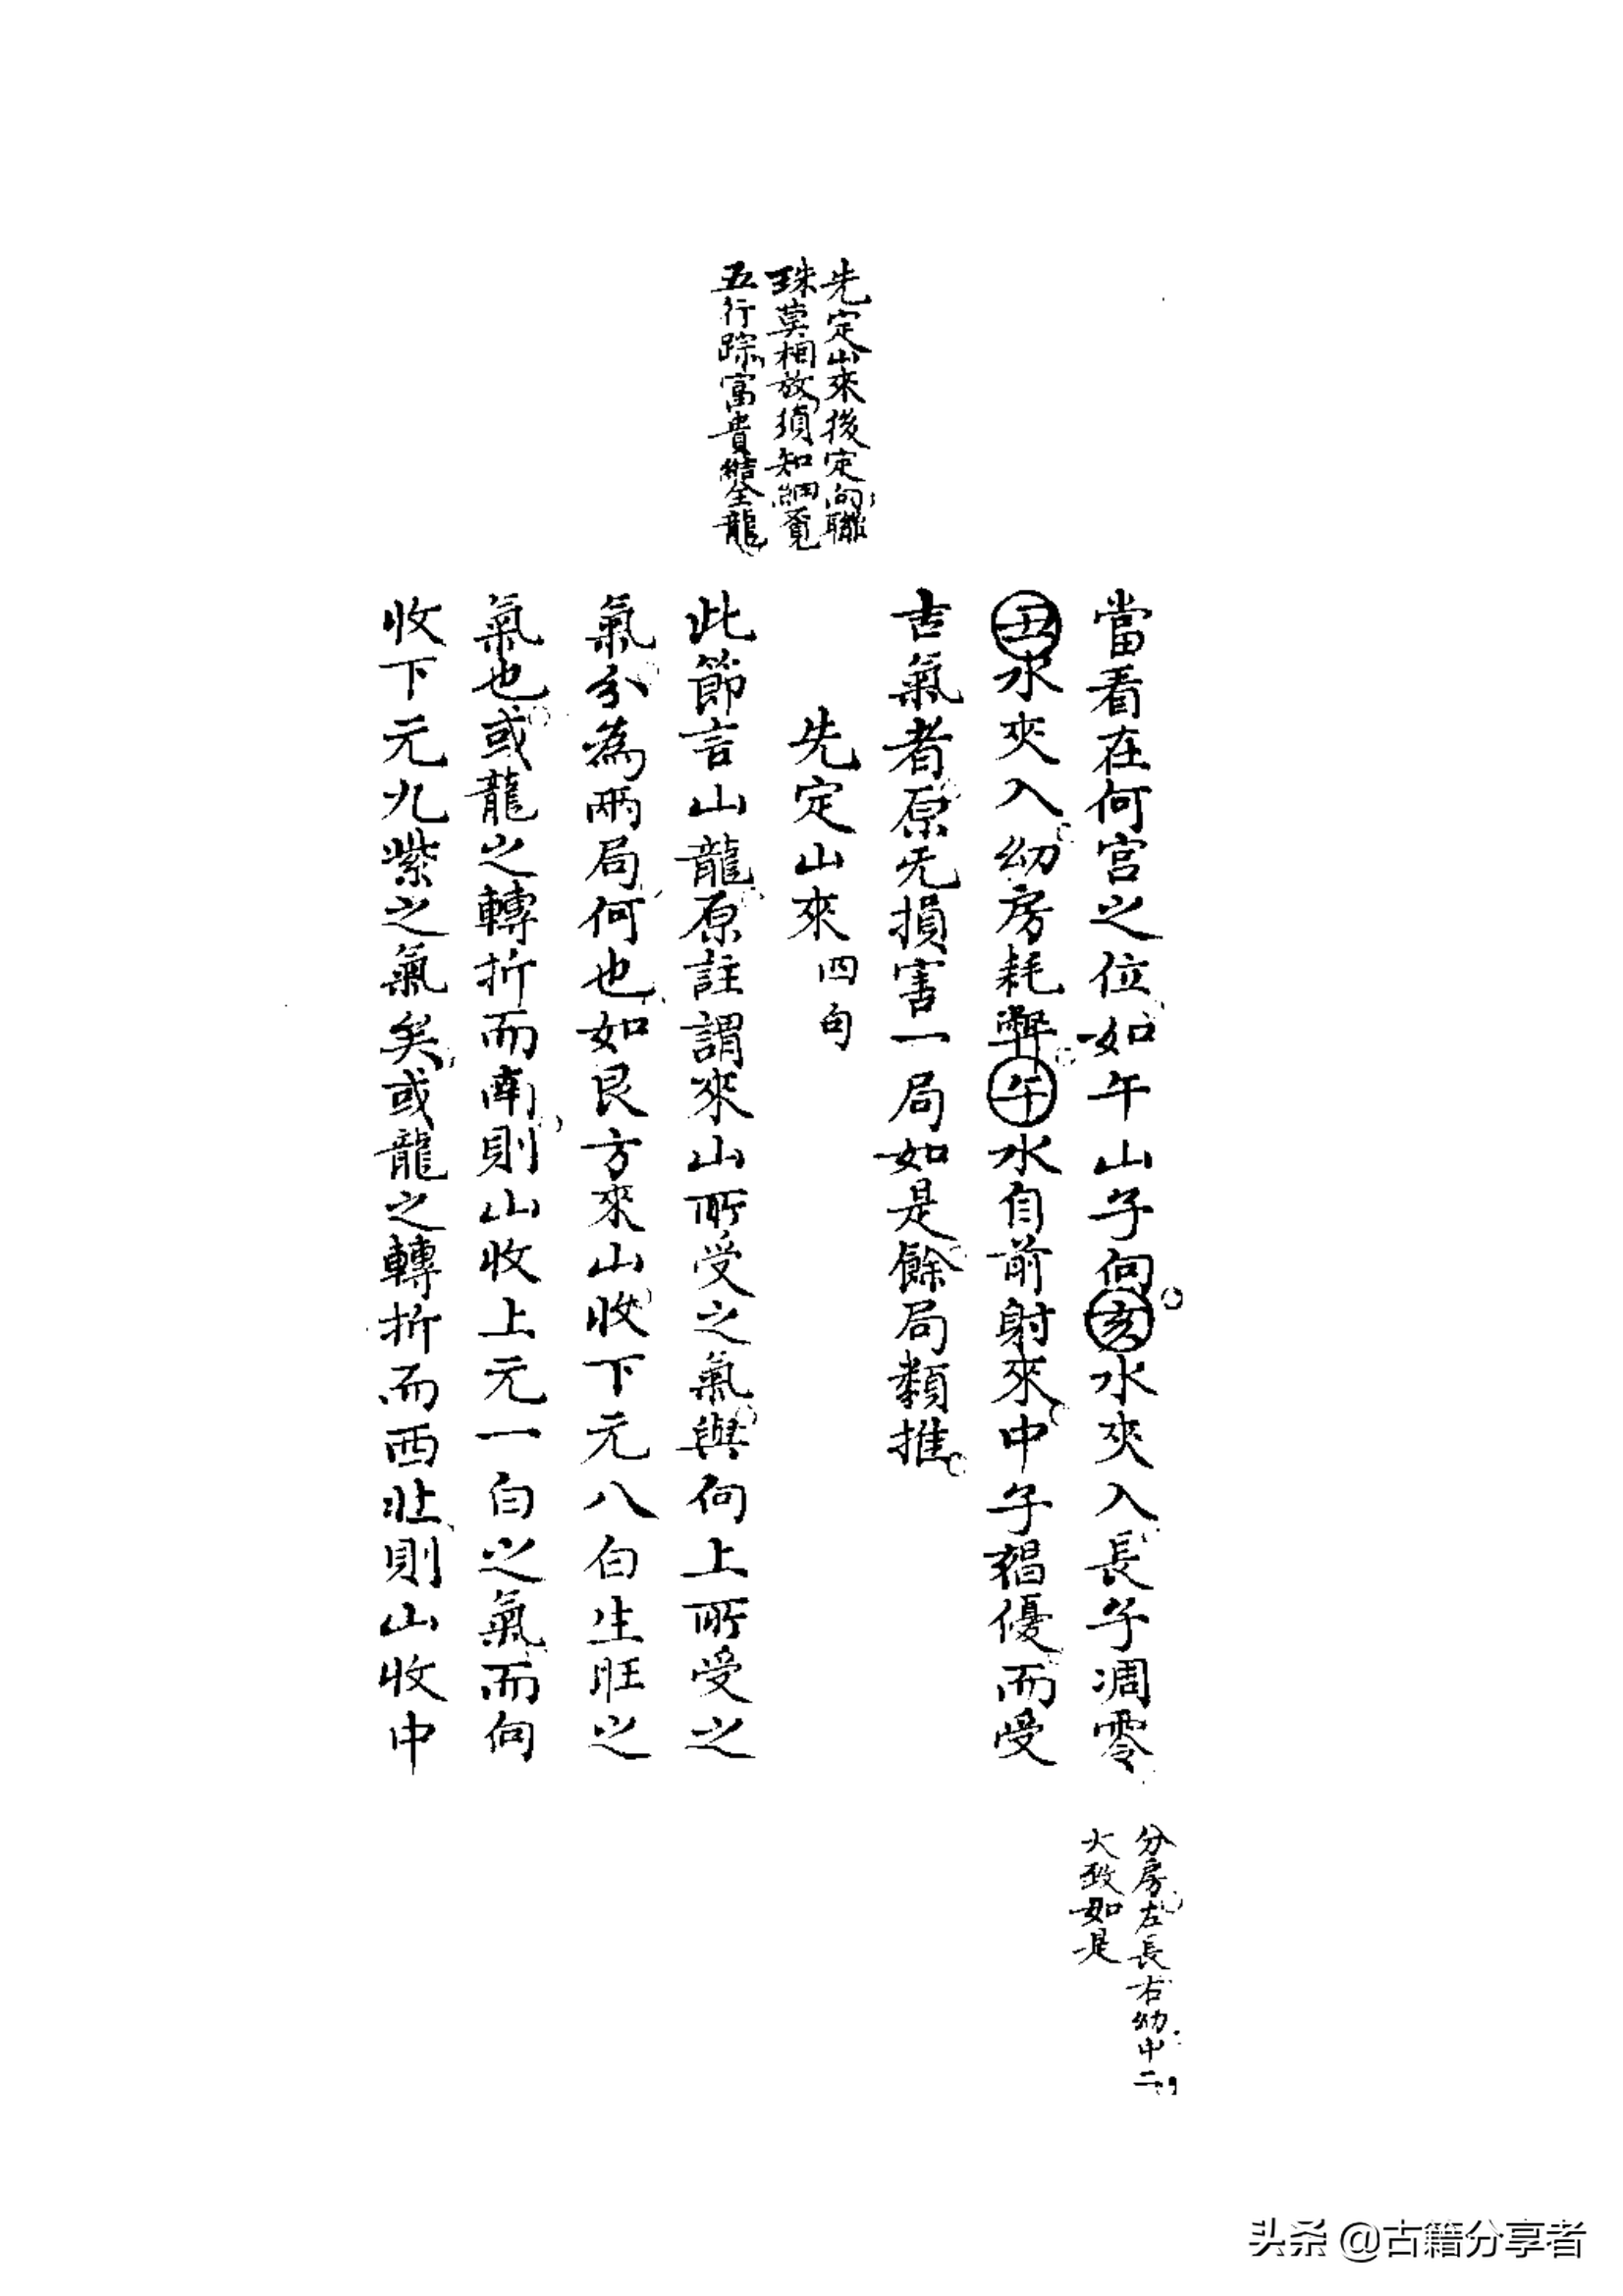 先定山來後定向聯
珠莫相放須知細覓
五行踪富貴結全龍
當看在何宮之位如午山子向亥水夾入長子凋零
丑水夾入幼房耗弊午水自前射來中子猖優而受
吉氣者原无損害一局如是餘局類推
先定山來四句
此節言山龍原註謂來山所受之氣與向上所受之
氣分為兩局何也如艮方來山收下元八白生旺之
氣也或龍之轉折而南則山收上元一白之氣而向
收下元九紫之氣矣或龍之轉折而西北則山收中
分房左長右幼中二
大致如是
头条 @古籍分享者